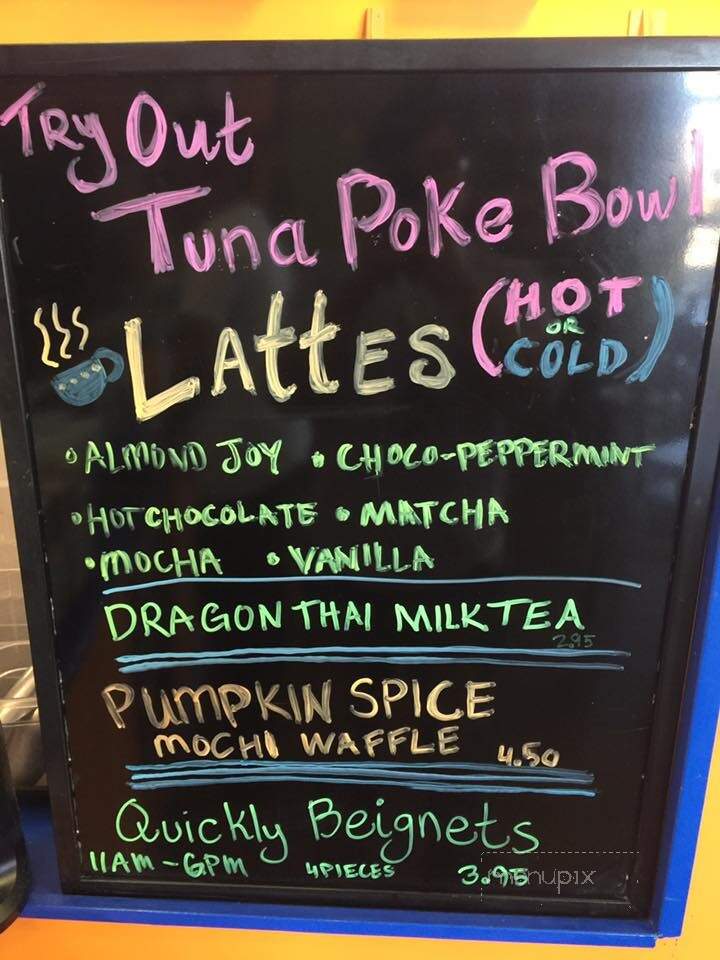 Try Out
Tuna Poke Bowl
LAttES (HOT OR COLD)
• ALMOND JOY • CHOCO-PEPPERMINT
• HOT CHOCOLATE • MATCHA
• MOCHA • VANILLA
DRAGON THAI MILK TEA
2.95
PUMPKIN SPICE
MOCHI WAFFLE 4.50
Quickly Beignets
11AM - 6PM 4 PIECES 3.95
menupix